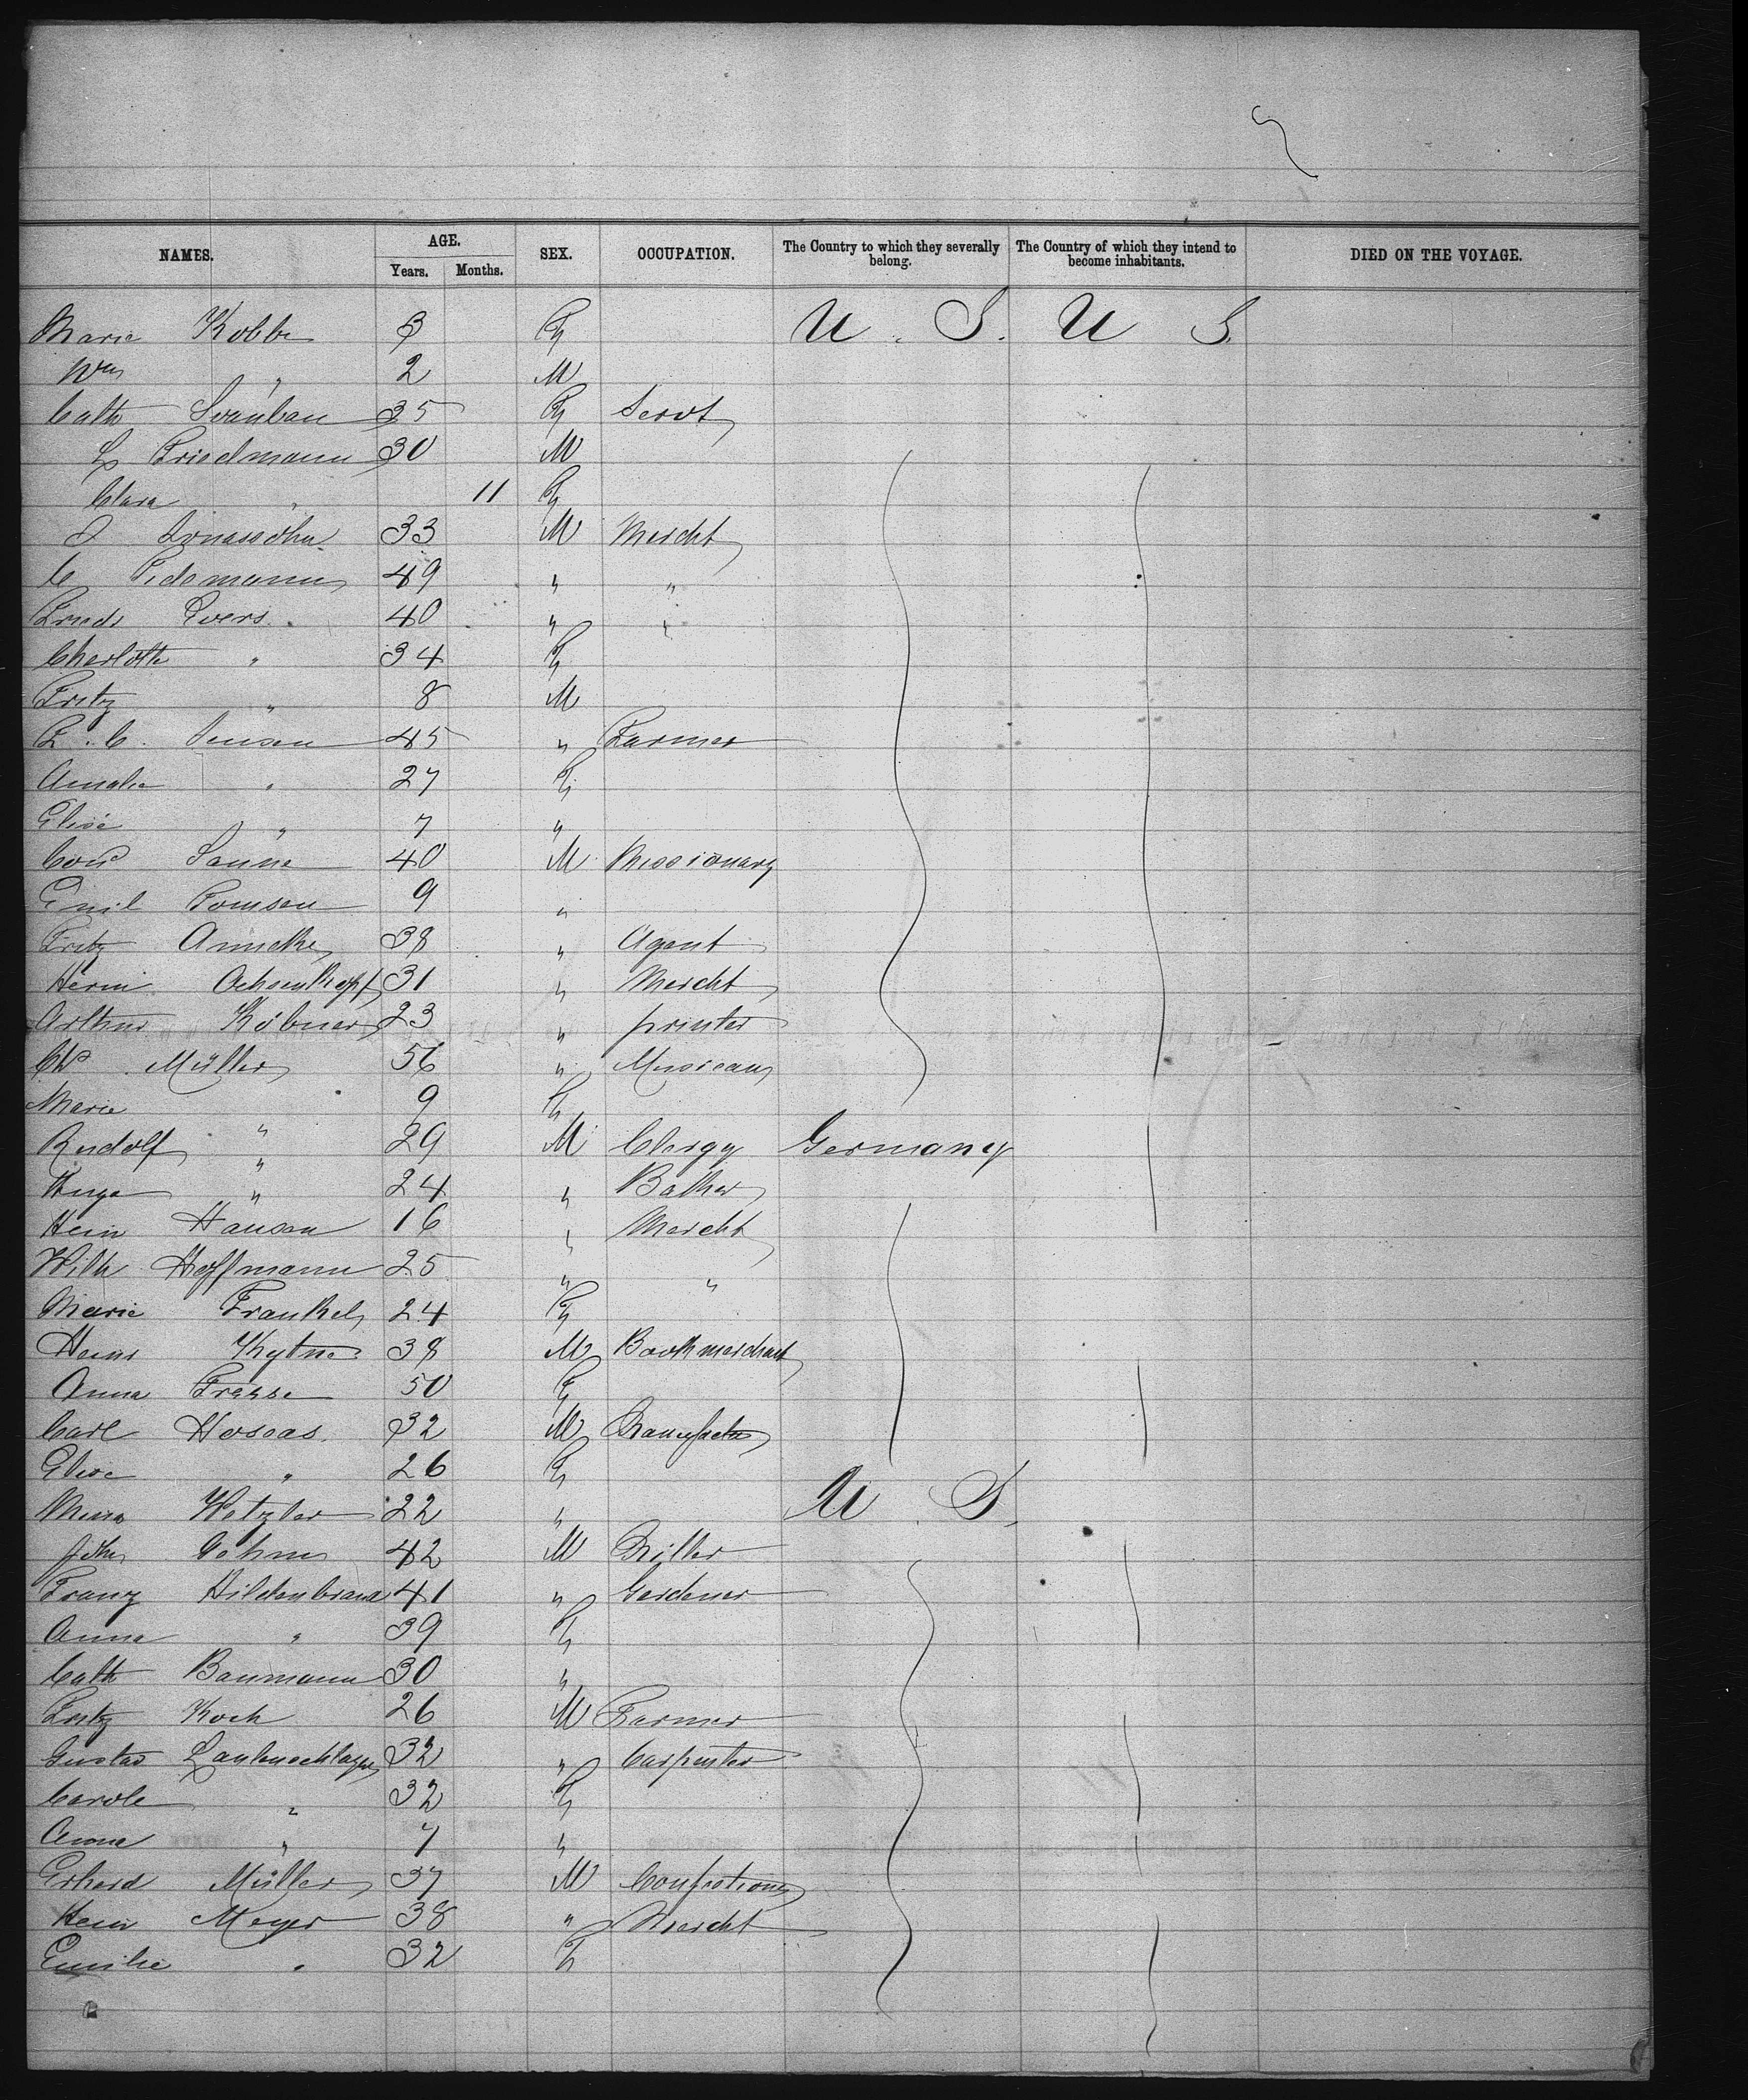 NAMES. AGE. SEX. OCCUPATION. The Country to which they severally belong. The Country of which they intend to become inhabitants. DIED ON THE VOYAGE.
Years. Months.
Marie Kobbe 3 F U. S. U S.
Wm " 2 M
Cath 35 F Servt
L Friedmann 30 M
Clara " 11 F
J Jonassohn 33 M Mercht
C Tidemann 49 " "
Friedr Evers 40 " "
Charlotte " 34 F
Fritz " 8 M
L. C. Jensen 45 " Farmer
Amalie " 27 F
Elise " 7 "
Conr Sanne 40 M Missionary
Emil Tomsen 9 "
Fritz Annecke 38 " Agent
Herm 31 " Mercht
Arthur Köbner 23 " printer
Müller 56 " Musican
Marie " 9 F
Rudolf " 29 M Clergy Germany
Hugo " 24 " Baker
Hein Hansen 16 " Mercht
Wilh Hoffmann 25 " "
Marie Frankel 24 F
Heinr 38 M Bookmerchant
Anna Frese 50 F
Carl 32 M Manufactr
Elise " 26 F
Mina Wetzler 22 " U. S.
John Gohm 42 M Miller
Franz Hildenbrand 41 " Gardener
Anna " 39 F
Cath Baumann 30 "
Fritz Koch 26 M Farmer
Gustav Laubenschlager 32 " Carpenter
Carole " 32 F
Anna " 7 "
Erhard Müller 37 M Confectioner
Hein Meyer 38 " Mercht
Emilie " 32 F